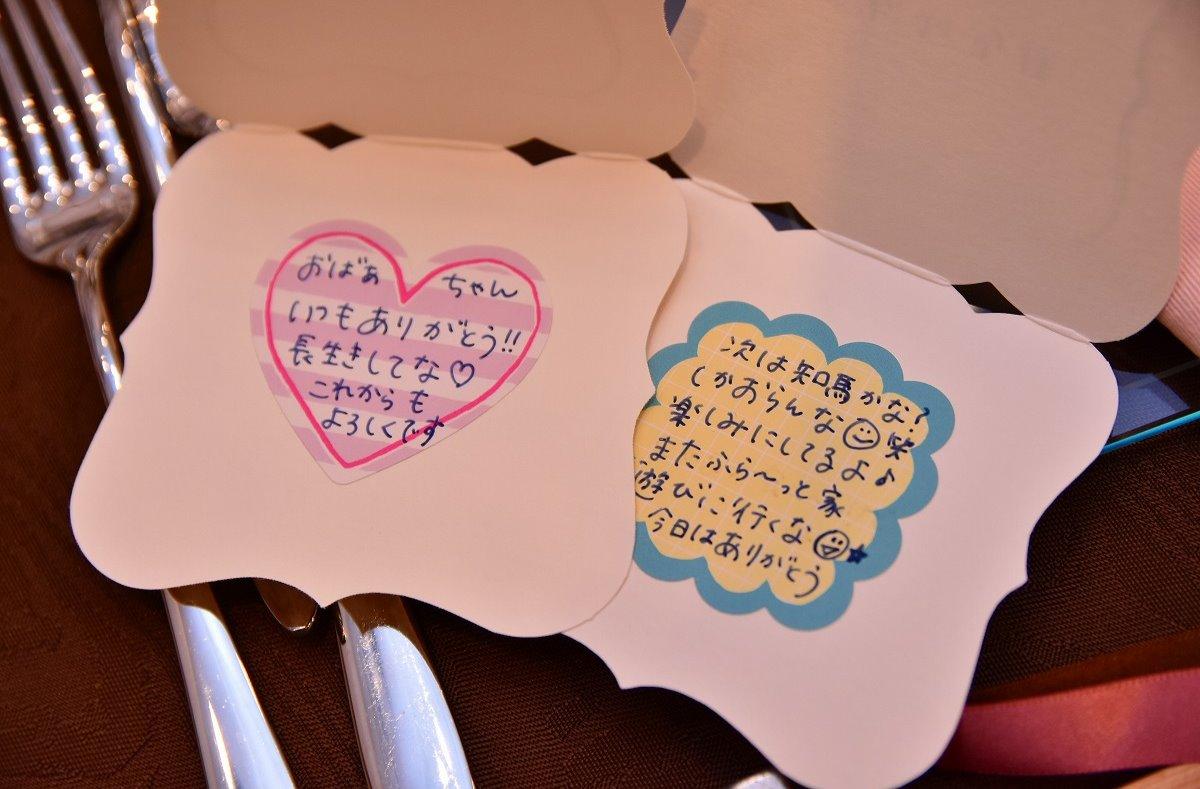 おばぁちゃん
いつもありがとう!!
長生きしてな♡
これからも
よろしくです
次は知馬かな?
しかおらんな☺笑
楽しみにしてるよ♪
またふら〜っと家
遊びに行くな😃★
今日はありがとう